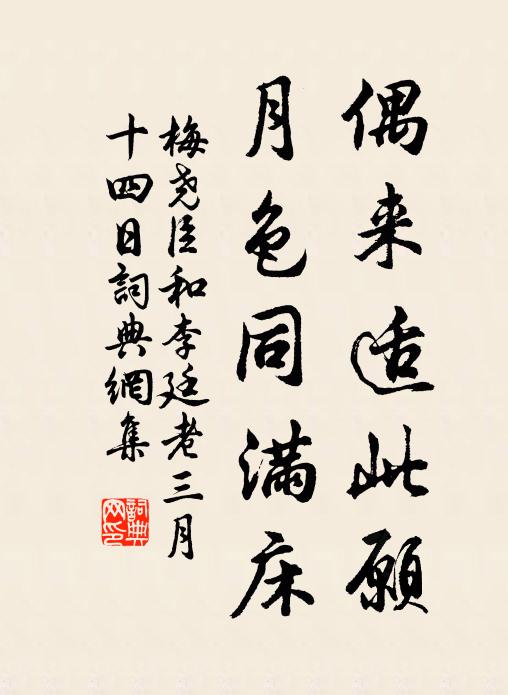 偶来适此願
月色同滿床
梅尧臣和李廷老三月
十四日詞典網集
詞典
网印